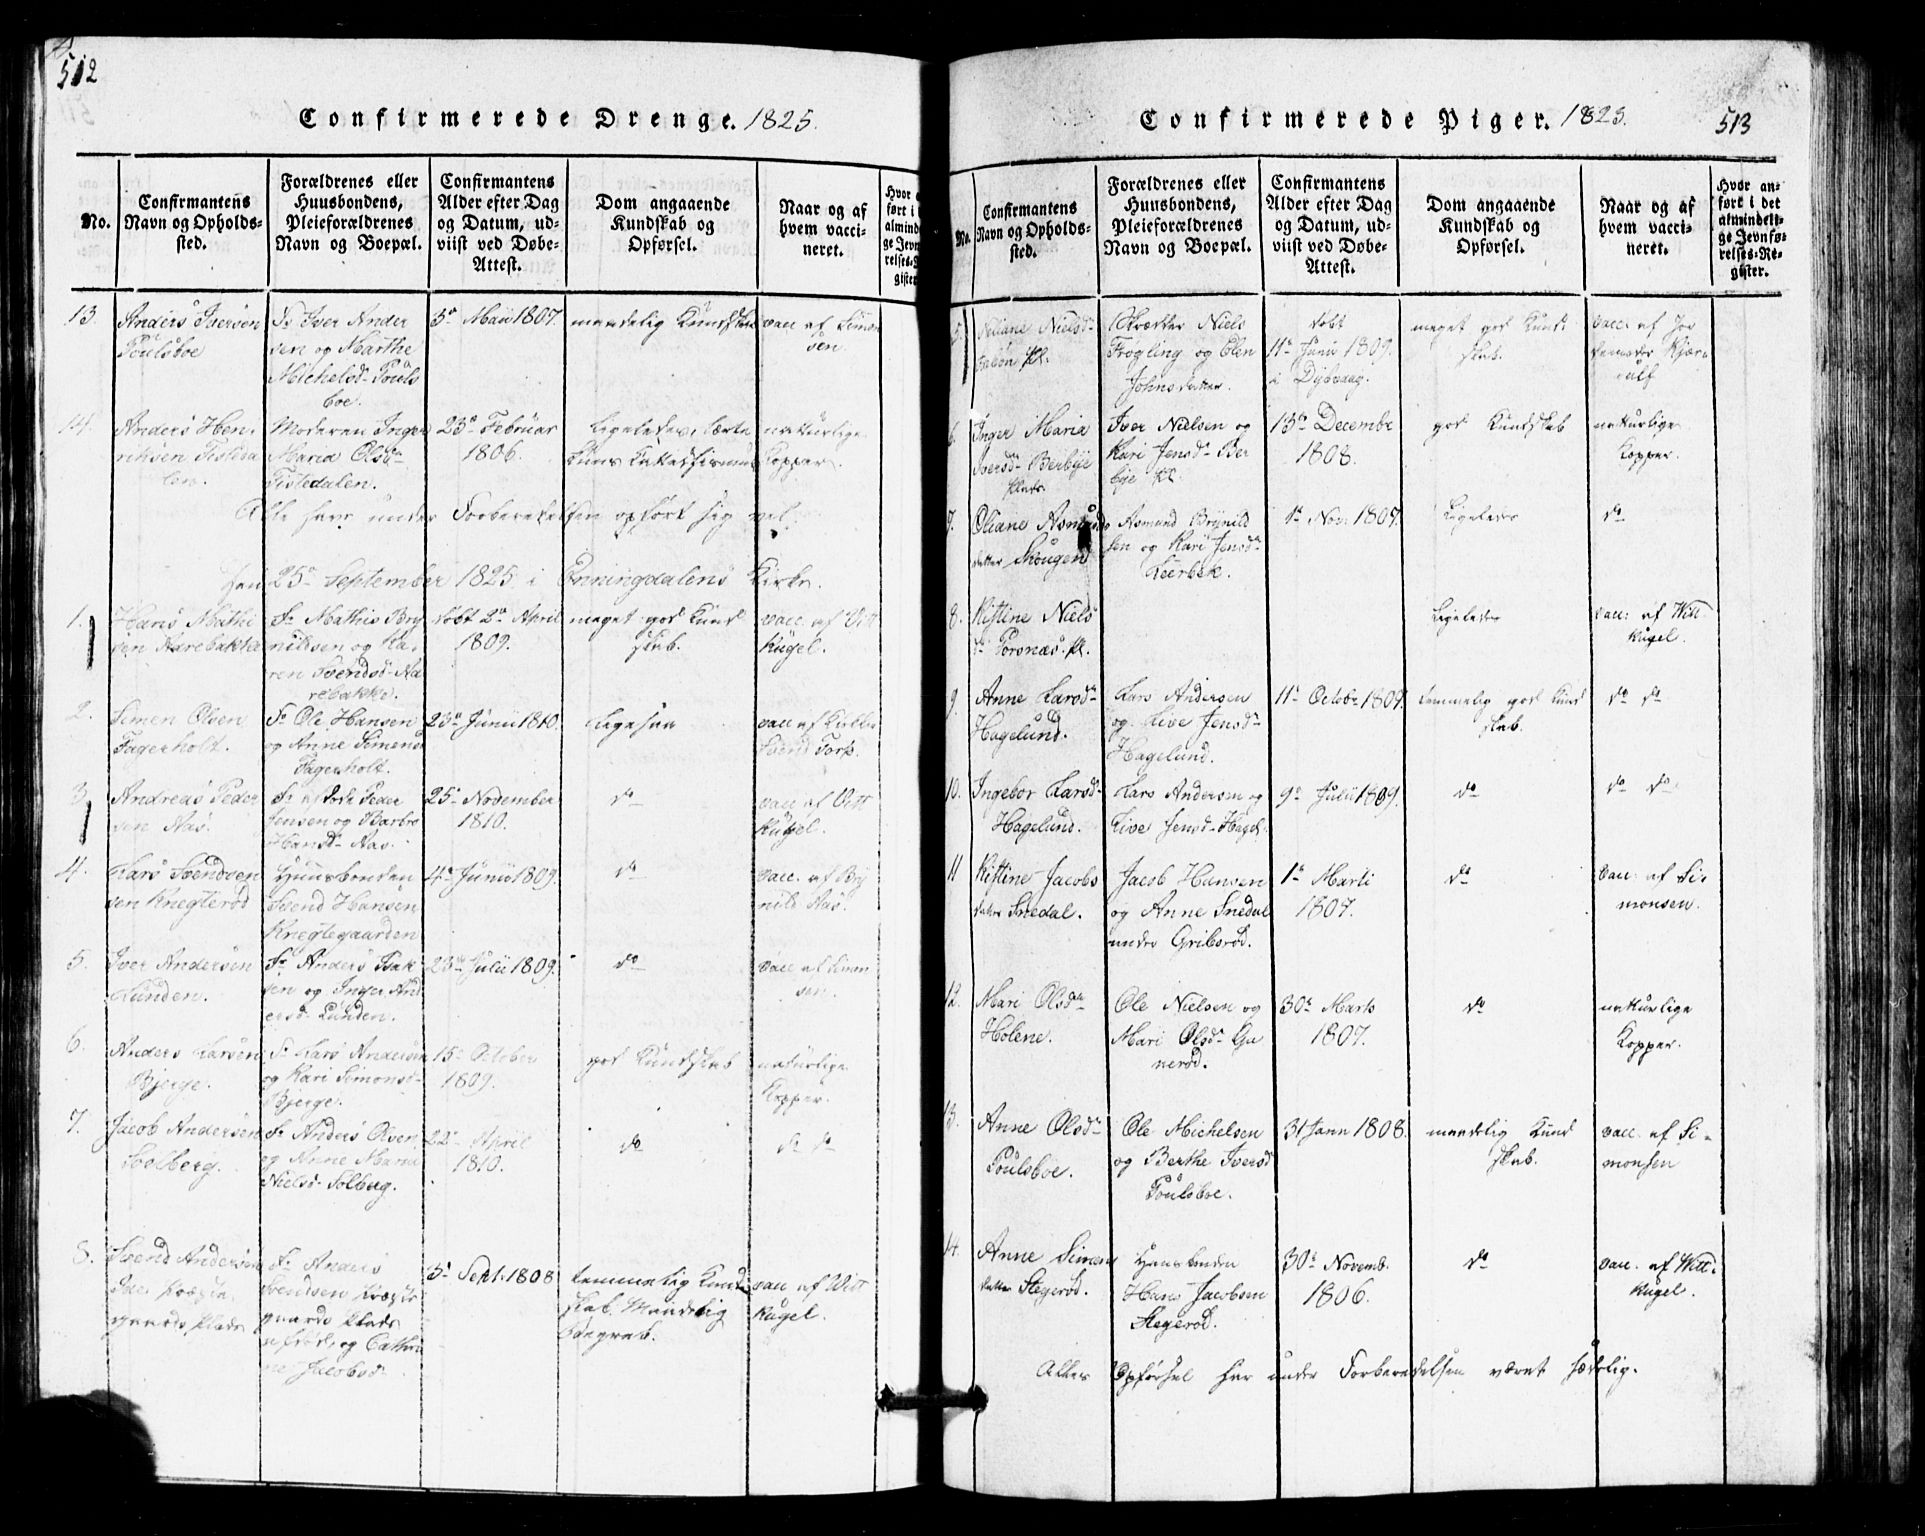 512
Confirmerede Drenge. 1825.
No.
Confirmantens
Navn og Opholds-
sted.
Forældrenes eller
Huusbondens,
Pleieforældrenes
Navn og Boepæl.
Confirmantens
Alder efter Dag
og Datum, ud-
viist ved Døbe-
Attest.
Dom angaaende
Kundskab og
Opførsel.
Naar og af
hvem vacci-
neret.
13.
Anders Iversen
Poulsboe
Fr Iver Ander
sen og Marthe
Michelsd- Pouls
boe.
5te Maii 1807.
maadelig Kundskab
vacc af Simon
sen.
14.
Anders Hen-
riksen Tisteda
len.
Moderen Inger
Maria Olsd-
Tistedalen.
23de Februar
1806.
ligeledes, lærte
naturlige
Kopper.
Alle have under Forberedelsen opført sig vel.
Den 25de September 1825 i Enningdalens Kirke.
1.
Hans Mathi
sen Harebakka
Fr Mathis Bry
nildsen og Ka-
ren Svendsd- Ha
rebakke.
døbt 2den April
1809.
meget god Kund
skab.
vacc. af Vitt
Kugel.
2.
Simen Olsen
Fagerholt.
Fr Ole Hansen
og Anne Simensd
Fagerholt.
23de Junii 1810.
ligesaa
vacc af
Svend Torp.
3.
Andreas Peder
sen Aas.
Fr afdøde Peder
Jensen og Barbro
Hansd- Aas.
25de November
1810.
do
vacc af Vitt
Kugel.
4.
Lars Svendsen
sen Knegterød
Huusbonden
Svend Hansen
Knegtegaarden
4de Junii 1809.
do
vacc. af Bry
nild Aas.
5.
Iver Andersen
Lunden.
Fr Anders Isak
sen og Inger And
ersd- Lunden.
23de Julii 1809.
do
vacc af Simon
sen.
6.
Anders Larsen
Bjerge.
Fr Lars Andersen
og Kari Simonsd-
Bjerge.
15de October
1809.
god Kundskab
naturlige
Kopper.
7.
Jacob Andersen
Solberg.
Fr Anders Olsen
og Anne Maria
Nielsd- Solberg.
22de April
1810.
do
do do
8.
Svend Andersen
gaards Plads
Fr Anders
Svendsen
gaards Plads
afdøde, og Cathri
ne Jacobsd-
5te Sept. 1808
temmelig Kund
skab. Maadelig
Begreb.
vacc af Witt
Kugel.
Confirmerede Piger. 1825.
513
No.
Confirmantens
Navn og Opholds-
sted.
Forældrenes eller
Huusbondens,
Pleieforældrenes
Navn og Boepæl.
Confirmantens
Alder efter Dag
og Datum, ud-
viist ved Døbe-
Attest.
Dom angaaende
Kundskab og
Opførsel.
Naar og af
hvem vacci-
neret.
Hvor an-
ført i det
almindeli-
ge Jevnfø-
relses-Re-
gister.
5.
Nielsd-
Pl.
Skrædder Niels
Frøgling og Elen
Johnsdatter.
døbt
11te Junii 1809.
i Dybvaag.
meget god Kund
skab.
vacc. af Jor
demoder Kjær
ulf
6.
Inger Maria
Iversd- Berbye
Plads.
Iver Nielsen og
Kari Jensd- Ber
bye Pl.
13de Decembr
1808.
god Kundskab
naturlige
Kopper.
7.
Oliane Asmunds
datter Skougen
Asmund Brynild
sen og Kari Jensd-
Leerbek.
1te Nov: 1807.
Ligeledes
do
8.
Kistine Niels
dr Torsnæs Pl.
Ligeledes
vacc: af Witt.
Kugel.
9.
Anne Larsd-
Hagelund.
Lars Andersen
og Live Jensd-
Hagelund.
11te Octobr 1807.
temmelig god Kund
skab.
do do
10.
Ingebor Larsd-
Hagelund.
Lars Andersen og
Live Jensd- Hagel.
9de Julii 1809.
do
do do
11
Kistine Jacobs
datter Snedal.
Jacob Hansen
og Anne Snedal
under Griberød.
1te Marti
1807.
do
vacc. af Si-
monsen.
12.
Mari Olsd-
Holene.
Ole Nielsen og
Mari Olsd- Ga
nerød.
30te Marts
1807.
do
naturlige
Kopper.
13.
Anne Olsd-
Poulsboe.
Ole Michelsen
og Berthe Iversd
Poulsboe.
31 Janr 1808.
maadelig Kund
skab.
vacc. af Si-
monsen
14.
Anne Simens
datter Stegerød.
Huusbonden
Hans Jacobsen
Stegerød.
30te Novemb.
1806.
do
vacc. af Witt-
Kugel.
Alles Opførsel har under Forberedelsen været sædelig.